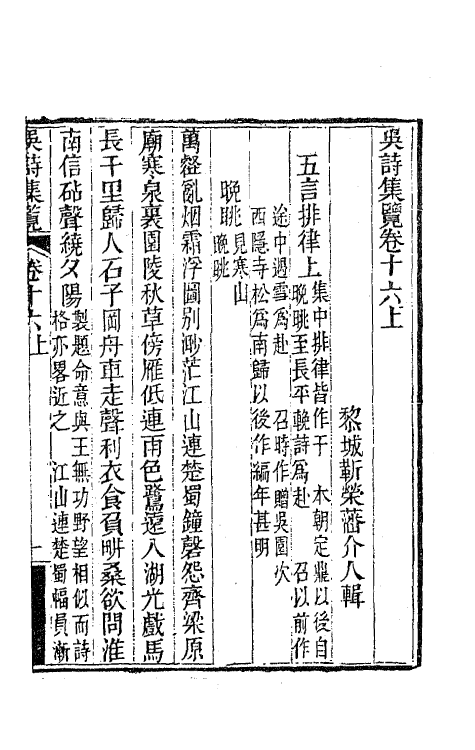 吳詩集覽卷十六上
黎城靳榮藩介人輯
五言排律上
集中排律皆作于 本朝定鼎以後自
晩眺至長平輓詩爲赴 召以前作
途中遇雪爲赴 召時作贈吳園次
西隱寺松爲南歸以後作編年甚明
晩眺
見寒山
晩眺
萬壑亂烟霜浮圖別渺茫江山連楚蜀鐘磬怨齊梁原
廟寒泉裏園陵秋草傍雁低連雨色鷺遠入湖光戲馬
長干里歸人石子岡舟車走聲利衣食負畊桑欲問淮
南信砧聲繞夕陽
製題命意與王無功野望相似而詩
格亦畧近之 江山連楚蜀幅員漸
吳詩集覽 卷十六上 一